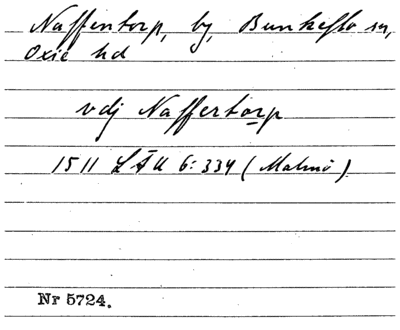 Naffentorp, by, Bunkeflo sn,
Oxie hd
vdj Naffertorp
1511 LÅU 6:334 (Malmö)
Nr 5724.